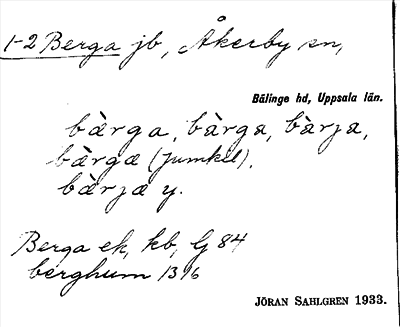 1-2 Berga jb, Åkerby sn,
Bälinge hd, Uppsala län.
bàrga, bàrga, bàrja,
bàrgæ (Jumkil),
bàrjæ y.
Berga ek, kb, G 84
berghum 1316
JÖRAN SAHLGREN 1933.